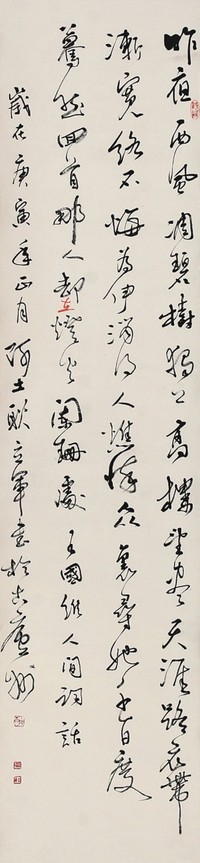 昨夜西風凋碧樹獨上高樓望盡天涯路衣帶
漸寬終不悔為伊消得人憔悴眾裏尋他千百度
驀然回首那人卻在燈火闌珊處王國維人間詞話
歲在庚寅年正月阿土立軍書於古廬州